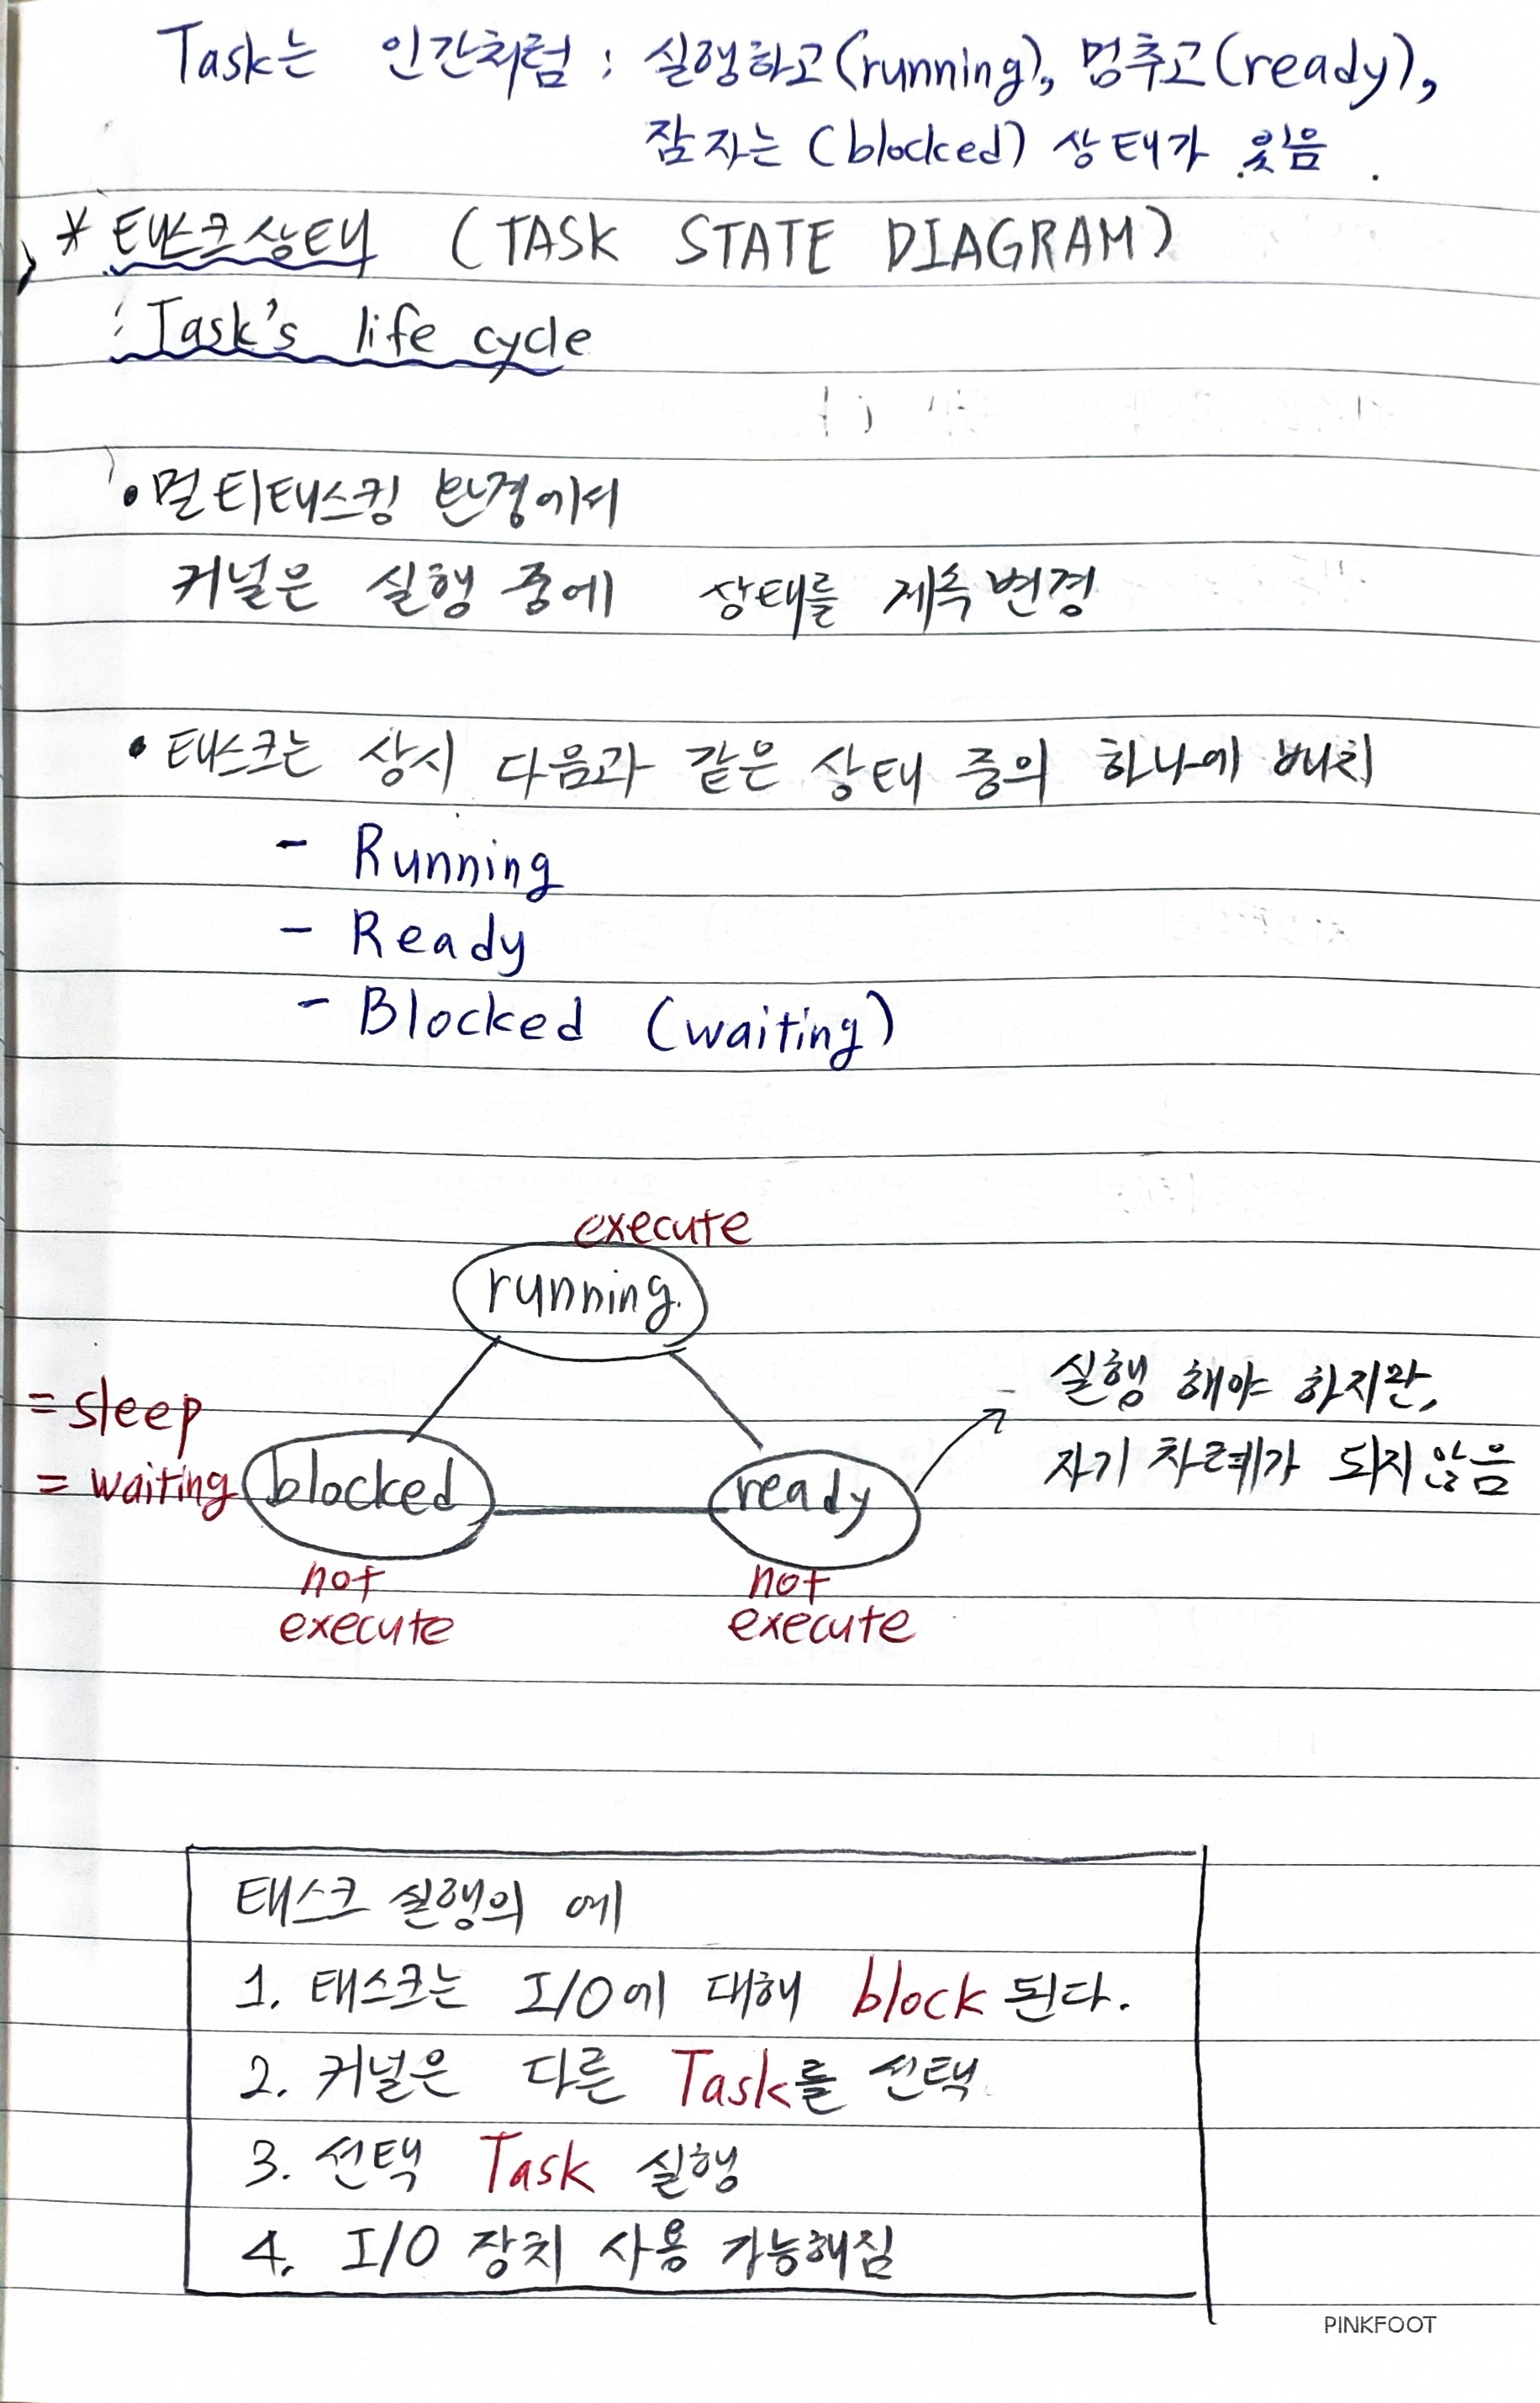 Task는 인간처럼 : 실행하고(running), 멈추고(ready),
잠자는 (blocked) 상태가 있음.
* 태스크상태 (TASK STATE DIAGRAM)
: Task's life cycle
• 멀티태스킹 환경에서
커널은 실행 중에 상태를 계속변경
• 태스크는 상시 다음과 같은 상태 중의 하나에 배치
- Running
- Ready
- Blocked (waiting)
execute
running
= sleep
= waiting
blocked
ready
실행 해야 하지만,
자기 차례가 되지않음
not
execute
not
execute
태스크 실행의 예
1. 태스크는 I/O에 대해 block 된다.
2. 커널은 다른 Task를 선택
3. 선택 Task 실행
4. I/O 장치 사용 가능해짐
PINKFOOT